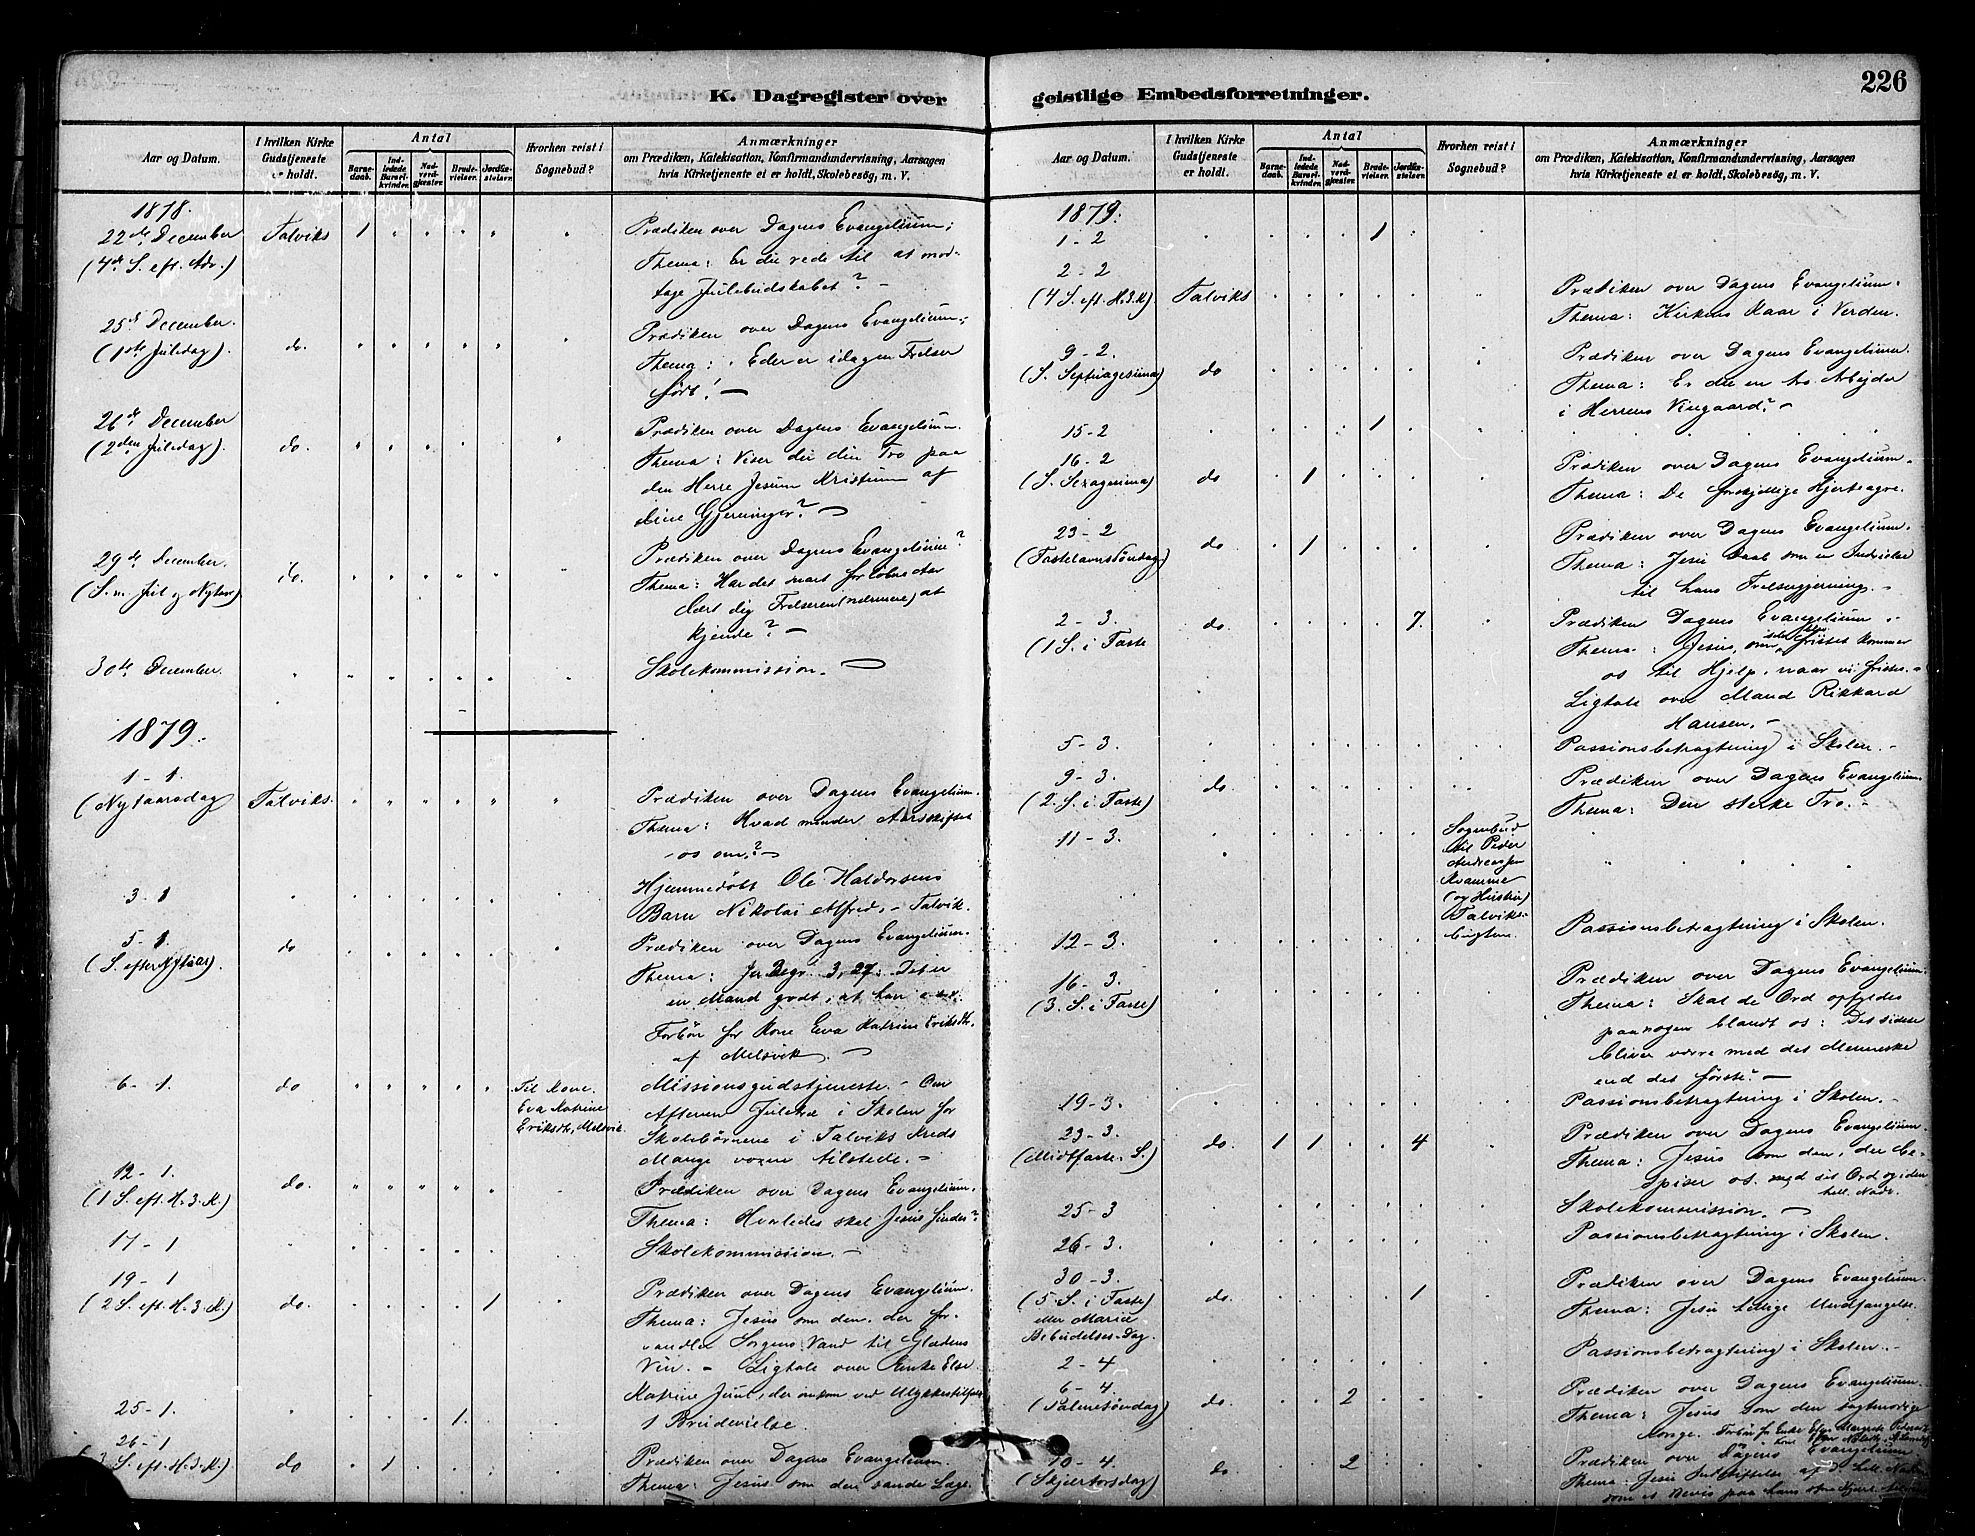 K. Dagregister over geistlige Embedsforretninger.
226
Aar og Datum.
I hvilken Kirke Gudstjeneste er holdt.
Antal
Barnedaab.
Indledede Barselkvinder.
Nadverdgjester.
Brudevielser.
Jordfæstelser.
Hvorhen reist i Sognebud?
Anmærkninger
om Prædiken, Katekisation, Konfirmandundervisning, Aarsagen
hvis Kirketjeneste ei er holdt, Skolebesög, m. V.
1878.
22de December Talviks 1 Prædiken over Dagens Evangelium;
(4de S. eft. Adv.) Thema: Er du rede til at mod-
tage Julebudskabet? -
25de December. Prædiken over Dagens Evangelium;
(1ste Juledag). do. Thema: Eder er idag en Frelser
født! -
26de December Prædiken over Dagens Evangelium.
(2den Juledag). do. Thema: Viser du din Tro paa
den Herre Jesum Kristum af
dine Gjerninger? -
29de December. Prædiken over Dagens Evangelium?
(S. m. Jul og Nytaar) do. Thema: Har det snart forløbne Aar
lært dig Frelseren (nærmere) at
kjende? -
30te December. Skolekommission. -
1879.
1-1.
(Nytaarsdag Talviks. Prædiken over Dagens Evangelium.
Thema: Hvad minder Aarsskiftet
os om? -
3-1 Hjemmedøbt Ole Haldorsens
Barn Nikolai Alfred. - Talvik.
5-1 do Prædiken over Dagens Evangelium.
(S. efter Nytaar) Thema: Jer Begr. 3, 27. Det er
en Mand godt, at han
Forbøn for Kone Eva Katrine Eriksdtr.
af Melsvik. -
6-1. do Til Kone Missionsgudstjeneste. - Om
Eva Katrine Aftenen Juletræ i Skolen for
Eriksdtr, Melsvik. Skolebørnene i Talviks Kreds
Mange voxne tilstede. -
12-1. do. Prædiken over Dagens Evangelium.
(1 S. eft. H. 3. K.) Thema: Hvorledes skal Jesus findes?
17-1 Skolekommission. -
19-1 Prædiken over Dagens Evangelium.
(2 S. eft. H. 3. K.) do. 1 Thema: Jesus som den, der for-
vandler Sorgens Vand til Glædens
Vin. - Ligtale over Enke Else
Katrine Juul, der omkom ved Ulykkestilfæl
25-1. 1. 1 Brudevielse.
26-1
3 S. eft. H. 3. K.) do 1 Prædiken over Dagens Evangelium.
Thema: Jesus som den sande Læge.
Aar og Datum.
I hvilken Kirke Gudstjeneste er holdt.
Antal
Barnedaab.
Indledede Barselkvinder.
Nadverdgjester.
Brudevielser.
Jordfæstelser.
Hvorhen reist i Sognebud?
Anmærkninger
om Prædiken, Katekisation, Konfirmandundervisning, Aarsagen
hvis Kirketjeneste ei er holdt, Skolebesög, m. V.
1879.
1-2 1
2-2 Prædiken over Dagens Evangelium.
(4 S. eft. H. 3. K). Talviks Thema: Kirkens Kaar i Verden.
9-2. Prædiken over Dagens Evangelium.
(S. Septuagesima) do Thema: Er du en tro Arbejder
i Herrens Vingaard? -
15-2 1
16-2 Prædiken over Dagens Evangelium.
(S. Sexagesima) do 1 Thema: De forskjellige Hjerteagre.
23-2 do. 1 Prædiken over Dagens Evangelium.
(Fastelavnssøndag) Thema: Jesu Daab som en Indvielse
til hans Frelsergjerning. -
2-3. do. 7 Prædiken Dagens Evangelium -
(1 S. i Faste Thema: Jesus, som selv fristet kommer
os til Hjelp, naar vi fristes. -
Ligtale over Mand Rikkard
Hansen. -
5-3. Passionsbetragtning i Skolen. -
9-3. do. Prædiken over Dagens Evangelium.
(2. S. i Faste) Thema: Den sterke Tro. -
11-3. Sognebud
til Peder
Andreassen
Kvamme
(og Hustru)
Talviks-
bugten.
12-3. Passionsbetragtning i Skolen.
16-3. Prædiken over Dagens Evangelium.
(3. S. i Faste) Thema: Skal de Ord opfyldes
paa nogen blandt os: Det sidste
bliver værre med det Menneske
end det første? -
19-3. Passionsbetragtning i Skolen. -
23-3. do. 1 1 4 Prædiken over Dagens Evangelium.
(Midtfaste. S.) Thema: Jesus som den, der be-
spiser os med sit Ord og i den
hell. Nadv.
25-3 Skolekommission. -
26-3. Passionsbetragtning i Skolen.
30-3. Prædiken over Dagens Evangelium.
(5. S. i Faste) do. 1 Thema: Jesu hellige Undfangelse.
eller Mariæ
Bebudelses-Dag.
2-4 Passionsbetragtning i Skolen. -
6-4. Prædiken over Dagens Evangelium.
(Palmesøndag) do. 2 Thema: Jesus som den sagtmodige
Konge. Forbøn for Enke
10-4. do 2 Prædiken over Dagens Evangelium
(Skjertorsdag) Thema: Jesu Indstiftelse af d. hell. Nadv
som et Bevis paa hans